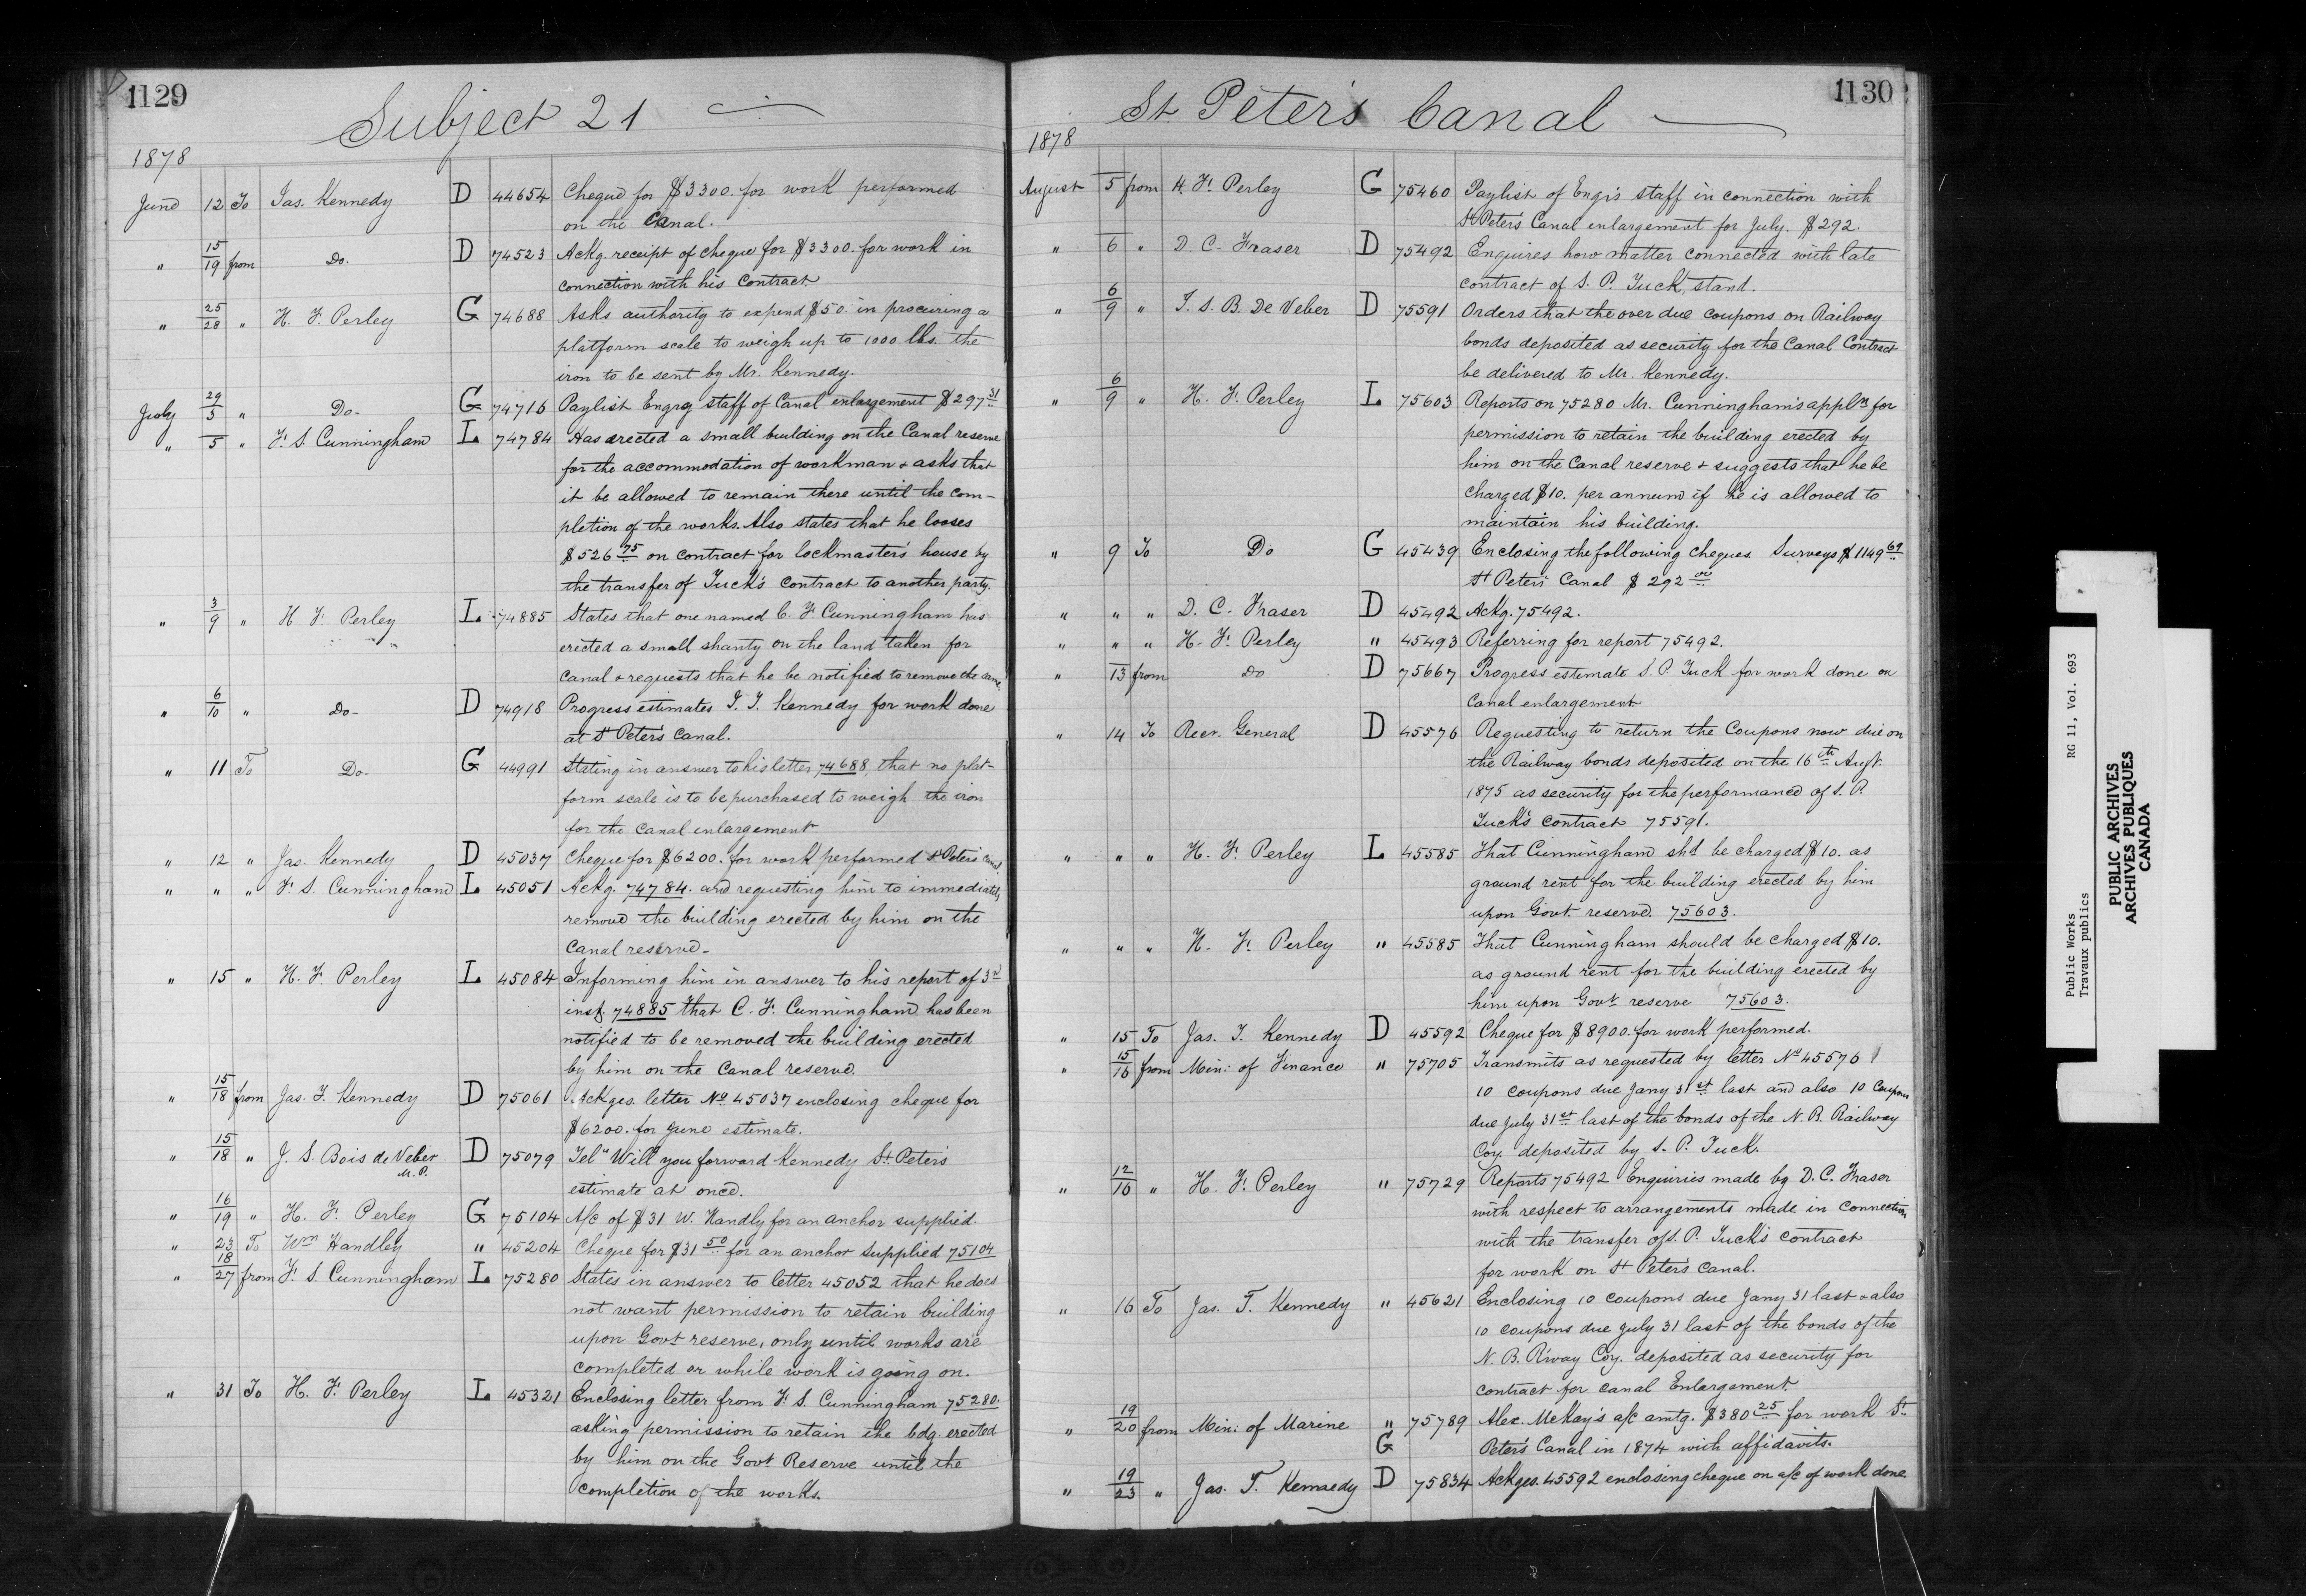 1129
Subject 21
1878
June 12 To Jas. Kennedy D 44654 Cheque for $3300. for work performed
on the Canal.
" 15/19 from Do. D 74523 Ackg. receipt of cheque for $3300. for work in
connection with his contract.
" 25/28 " H. F. Perley G 74688 Asks authority to expend $50. in procuring a
platform scale to weigh up to 1000 lbs. the
iron to be sent by Mr. Kennedy.
July 29/5 " Do- G 74716 Paylist Engrg staff of Canal enlargement $297 31
" 5 " F. S. Cunningham L 74784 Has erected a small building on the Canal reserve
for the accommodation of workman & asks that
it be allowed to remain there until the com-
pletion of the works. Also states that he looses
$526 75 on contract for lockmaster's house by
the transfer of Tuck's contract to another party.
" 3/9 " H F. Perley L 74885 States that one named C. F. Cunningham has
erected a small shanty on the land taken for
Canal & requests that he be notified to remove the same.
" 6/10 " Do- D 74918 Progress estimates J. T. Kennedy for work done
at St Peter's Canal.
" 11 To Do- G 44991 Stating in answer to his letter 74688, that no plat-
form scale is to be purchased to weigh the iron
for the Canal enlargement
" 12 " Jas. Kennedy D 45037 Cheque for $6200. for work performed St Peter's Canal
" " " F. S. Cunningham L 45051 Ackg. 74784. and requesting him to immediately
remove the building erected by him on the
Canal reserve-
" 15 " H. F. Perley L 45084 Informing him in answer to his report of 3rd
inst. 74885 that C. F. Cunningham has been
notified to be removed the building erected
by him on the Canal reserve.
" 15/18 from Jas. T. Kennedy D 75061 Ackges. letter No 45037 enclosing cheque for
$6200. for June estimate.
" 15/18 " J. S. Bois de Veber D 75079 Tel" Will you forward Kennedy St. Peter's
M.P. estimate at once.
" 16/19 " H. F. Perley G 75104 A/c of $31 W. Handly for an anchor supplied.
" 23 To Wm Handley " 45204 Cheque for $31 50 for an anchor supplied 75104
" 18/27 from F. S. Cunningham L 75280 States in answer to letter 45052 that he does
not want permission to retain building
upon Govt reserve, only until works are
completed or while work is going on.
" 31 To H. F. Perley L 45321 Enclosing letter from F. S. Cunningham 75280.
asking permission to retain the bdg. erected
by him on the Govt Reserve until the
completion of the works.
1130
St. Peter's Canal
1878
August 5 from H. F. Perley G 75460 Paylist of Engr's staff in connection with
St Peter's Canal enlargement for July. $292.
" 6 " D. C. Fraser D 75492 Enquires how matter connected with late
contract of S. P. Tuck, stand.
" 6/9 " J. S. B. De Veber D 75591 Orders that the over due coupons on Railway
bonds deposited as security for the Canal Contract
be delivered to Mr. Kennedy.
" 6/9 " H. F. Perley L 75603 Reports on 75280 Mr. Cunningham's appln for
permission to retain the building erected by
him on the Canal reserve & suggests that he be
charged $10. per annum if he is allowed to
maintain his building.
" 9 To Do G 45439 Enclosing the following cheques Surveys $1149 69
St Peter's Canal $292 00
" " " D. C. Fraser D 45492 Ackg. 75492.
" " " H. F. Perley " 45493 Referring for report 75492.
" 13 from Do D 75667 Progress estimate S. P. Tuck for work done on
Canal enlargement
" 14 To Recr. General D 45576 Requesting to return the Coupons now due on
the Railway bonds deposited on the 16th Augt.
1875 as security for the performance of S. P.
Tuck's contract 75591.
" " " H. F. Perley L 45585 That Cunningham shd be charged $10. as
ground rent for the building erected by him
upon Govt. reserve. 75603.
" " " H. F. Perley " 45585 That Cunningham should be charged $10.
as ground rent for the building erected by
him upon Govt reserve 75603.
" 15 To Jas. T. Kennedy D 45592 Cheque for $8900. for work performed.
" 15/16 from Min: of Finance " 75705 Transmits as requested by letter No 45576
10 coupons due Jany 31st last and also 10 Coupons
due July 31st last of the bonds of the N. B. Railway
Coy. deposited by S. P. Tuck.
" 12/16 " H. F. Perley " 75729 Reports 75492 Enquiries made by D. C. Fraser
with respect to arrangements made in connection
with the transfer of S. P. Tuck's contract
for work on St Peter's Canal.
" 16 To Jas. T. Kennedy " 45621 Enclosing 10 coupons due Jany 31 last & also
10 coupons due July 31 last of the bonds of the
N. B. R'way Coy. deposited as security for
contract for canal Enlargement.
" 19/20 from Min: of Marine " 75789 Alex. McKay's a/c amtg. $380 25 for work St.
G Peter's Canal in 1874 with affidavits.
" 19/23 " Jas. T. Kennedy D 75834 Ackges. 45592 enclosing cheque on a/c of work done
Public Works RG 11, Vol. 693
Travaux publics
PUBLIC ARCHIVES
ARCHIVES PUBLIQUES
CANADA